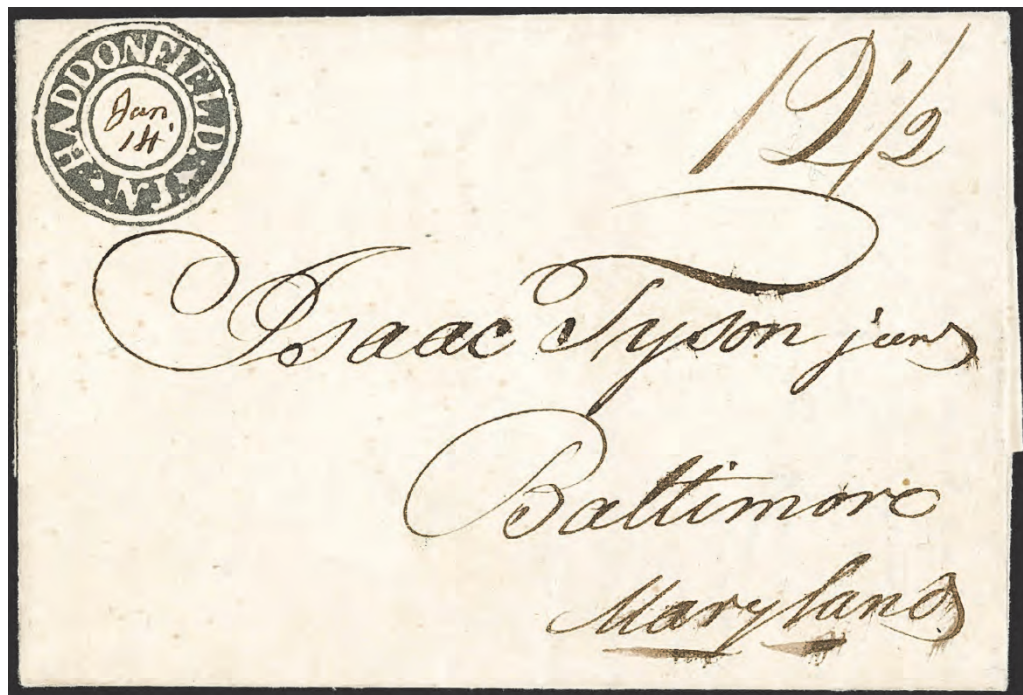 HADDONFIELD.
N.J
Jan
14
12 1/2
Isaac Tyson junr
Baltimore
Maryland